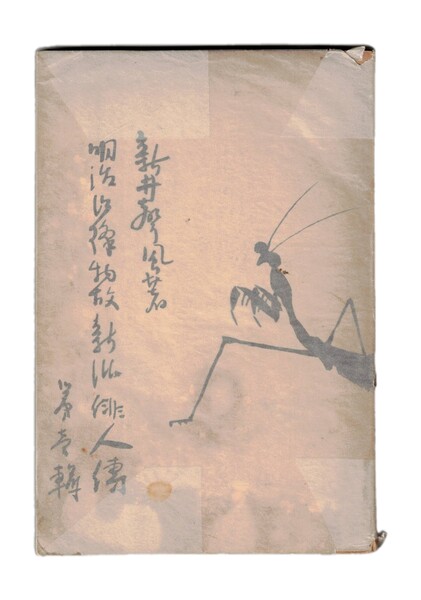 新井声風著
明治以降物故新派俳人傳
第壱輯